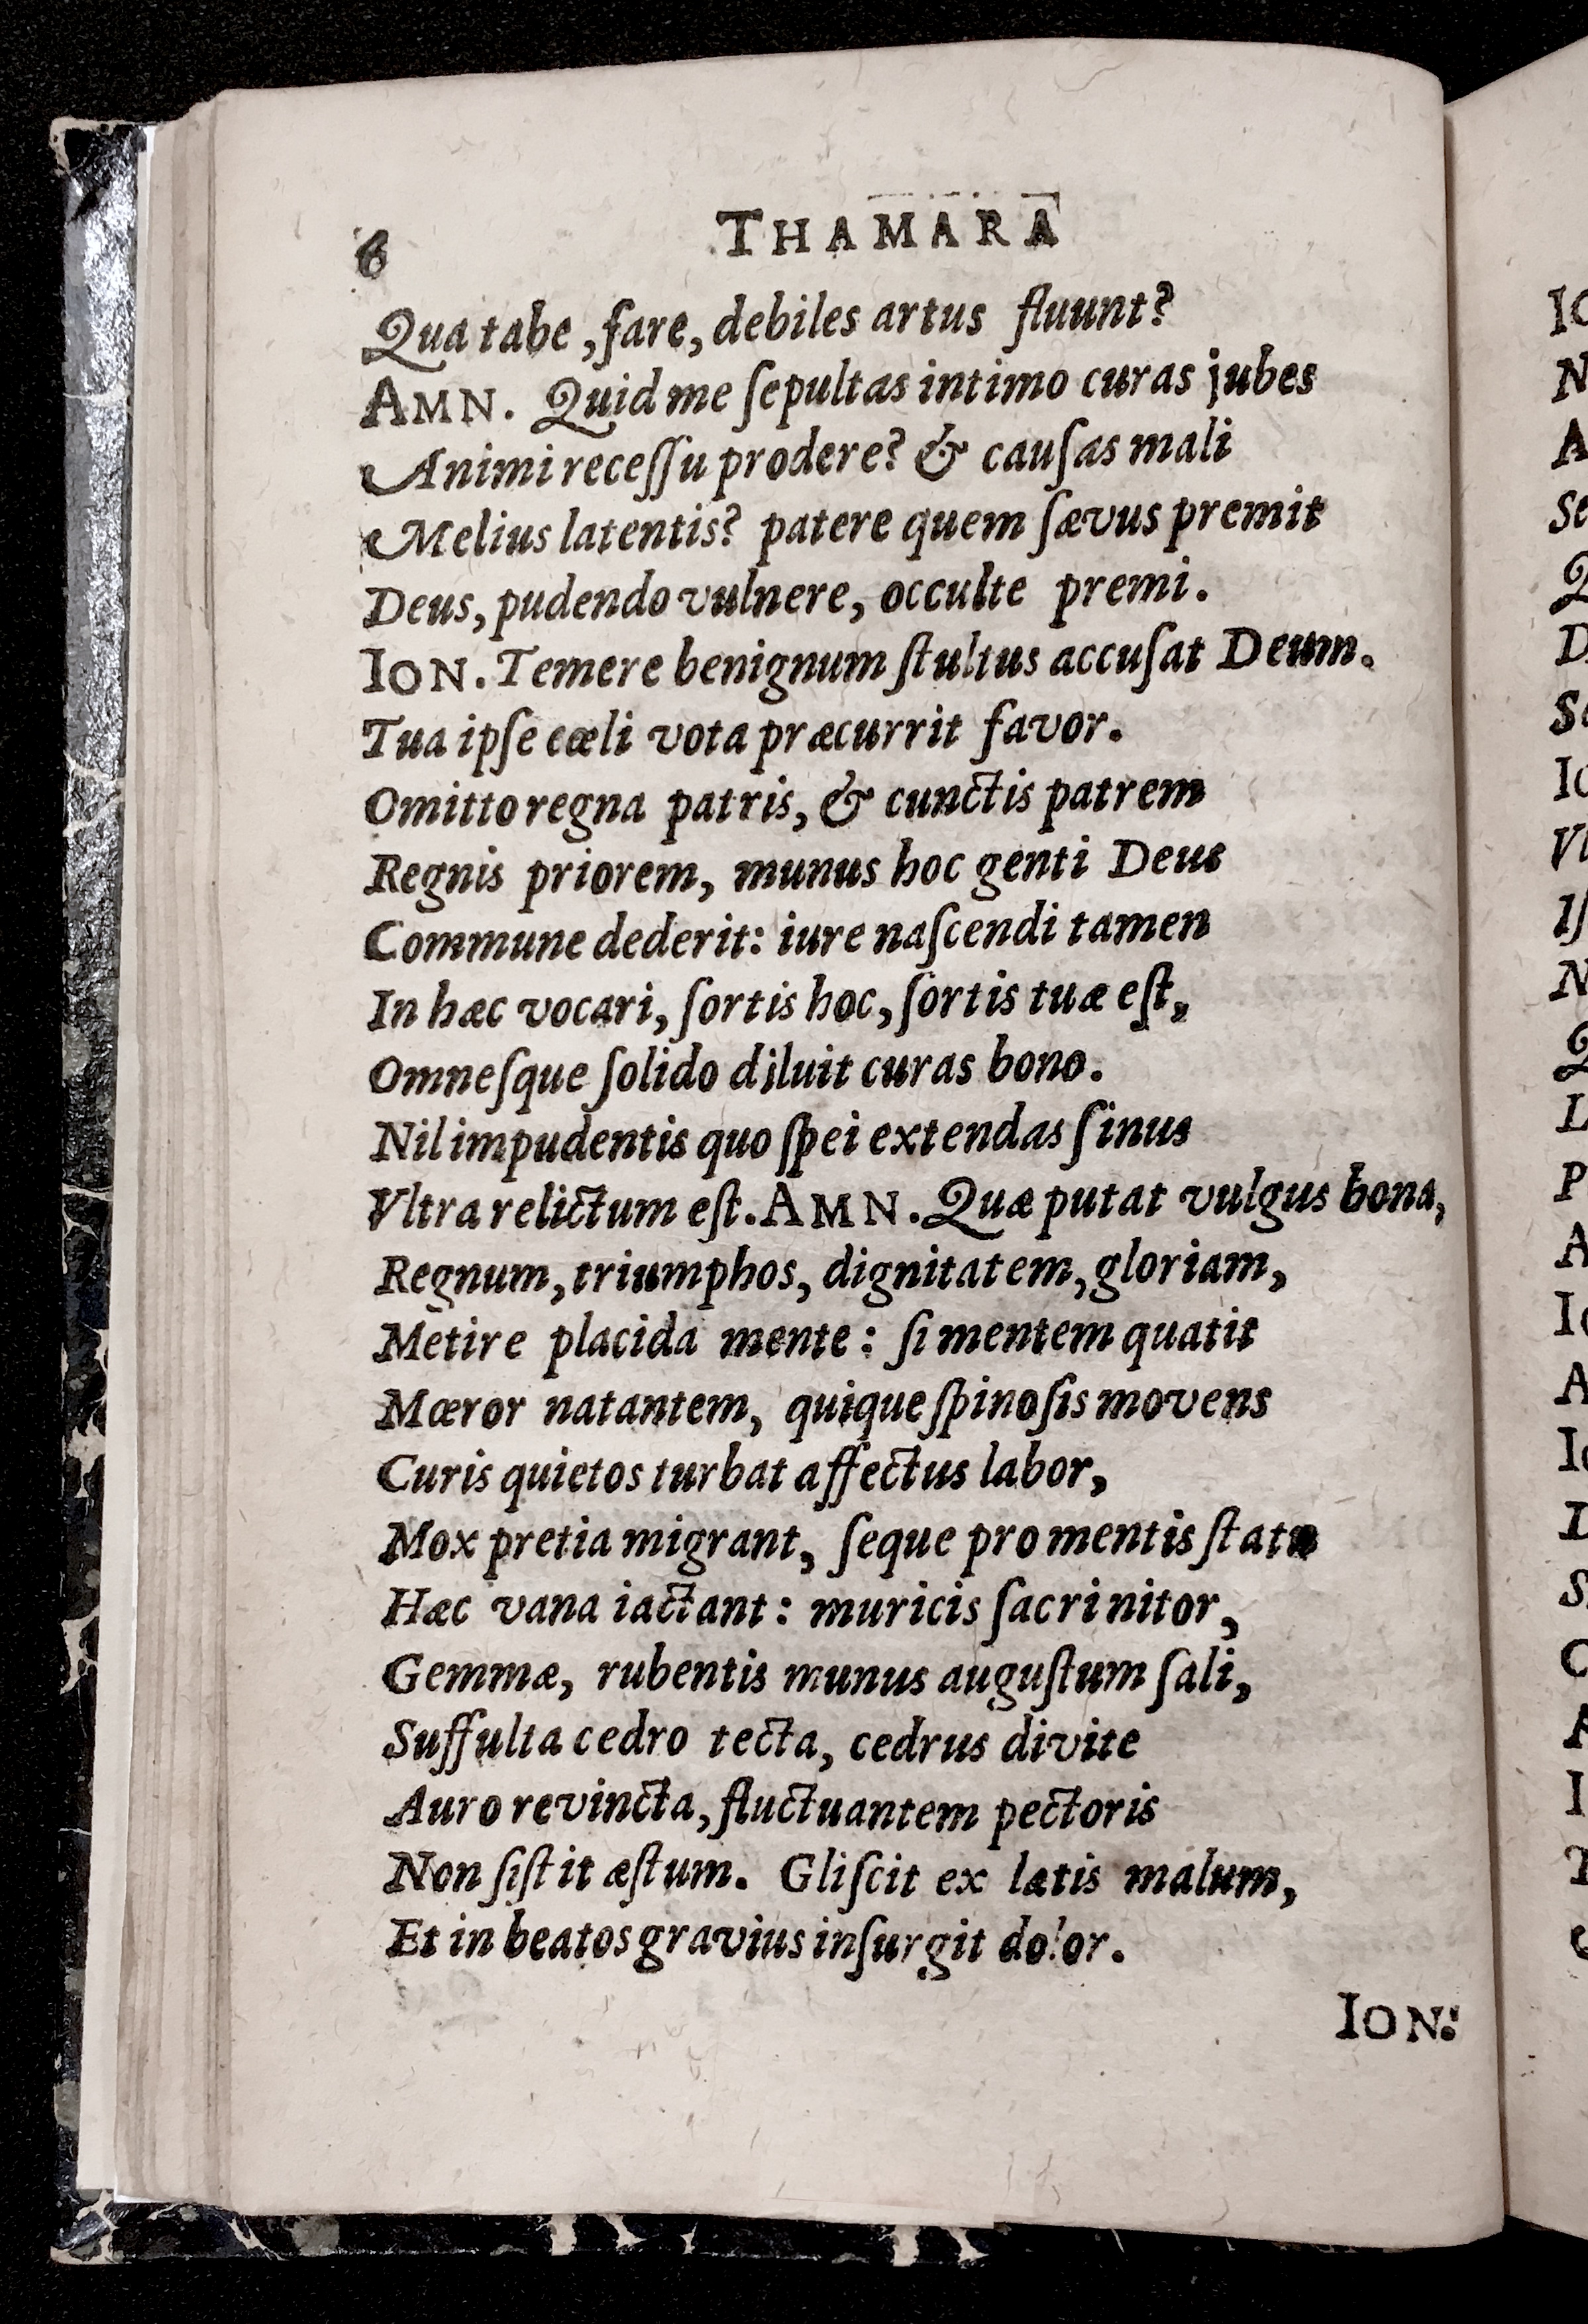 6 THAMARA
Qua tabe, fare, debiles artus fluunt?
AMN. Quid me ſepultas intimo curas jubes
Animi receſſu prodere? & cauſas mali
Melius latentis? patere quem ſævus premit
Deus, pudendo vulnere, occulte premi.
ION. Temere benignum ſtultus accuſat Deum.
Tua ipſe cœli vota præcurrit favor.
Omitto regna patris, & cunctis patrem
Regnis priorem, munus hoc genti Deus
Commune dederit: iure naſcendi tamen
In hæc vocari, ſortis hoc, ſortis tuæ eſt,
Omneſque ſolido diluit curas bono.
Nil impudentis quo ſpei extendas ſinus
Vltra relictum eſt. AMN. Quæ putat vulgus bona,
Regnum, triumphos, dignitatem, gloriam,
Metire placida mente: ſi mentem quatit
Mœror natantem, quique ſpinoſis movens
Curis quietos turbat affectus labor,
Mox pretia migrant, ſeque pro mentis ſtatu
Hæc vana iactant: muricis ſacri nitor,
Gemmæ, rubentis munus auguſtum ſali,
Suffulta cedro tecta, cedrus divite
Auro revincta, fluctuantem pectoris
Non ſiſtit æſtum. Gliſcit ex lætis malum,
Et in beatos gravius inſurgit dolor.
ION: